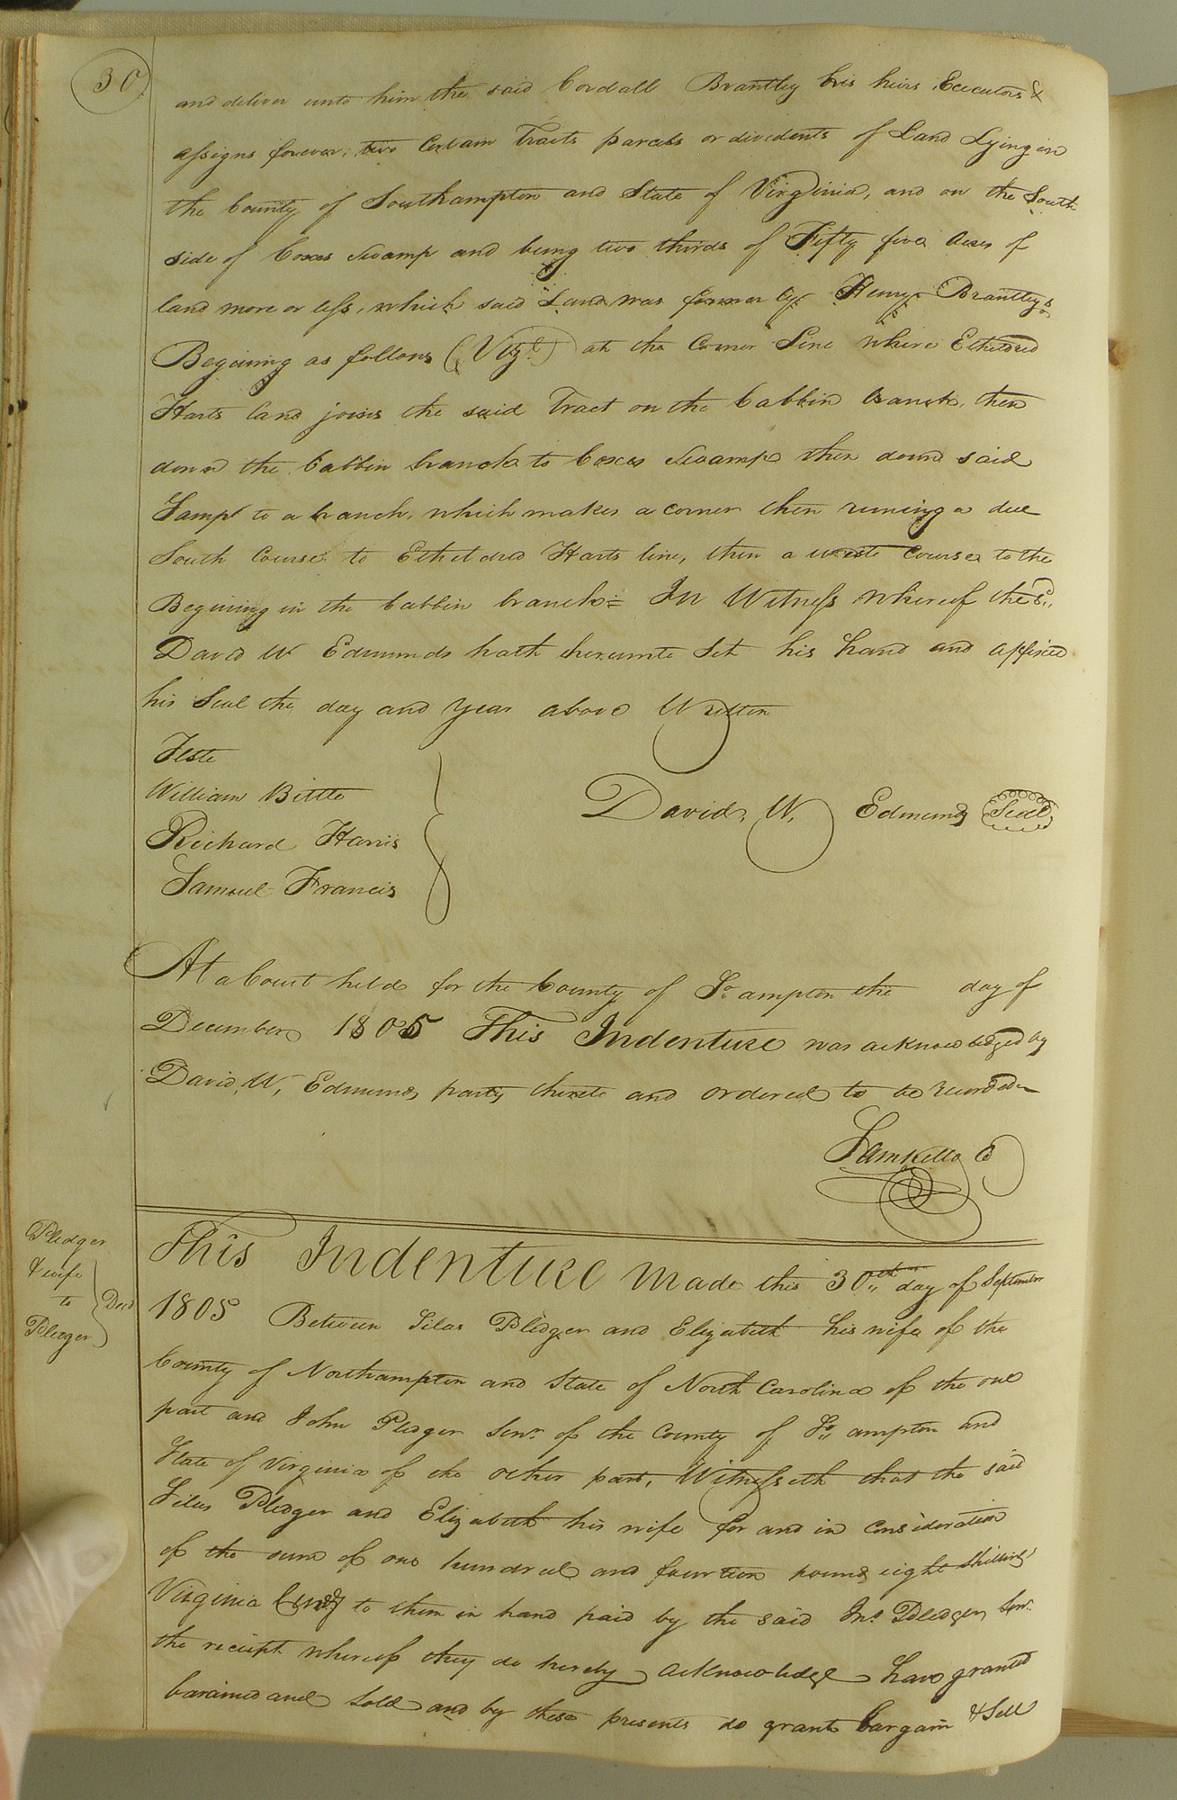 30
and deliver unto him the said Cordall Brantley his heirs Executors &
assigns forever; two Certain Tracts parcels or dividents of Land Lying in
the County of Southampton and State of Virginia, and on the South
side of Coxes Swamp and being two thirds of Fifty five Acres of
land more or less, which said Land was former ly Henry Brantleys
Begining as follows (Vizt) at the Corner Line where Etheldred
Harts land joins the said Tract on the Cabbin branch, then
down the Cabbin branch to Coxes Swamp then down said
Samp to a branch, which makes a corner then runing a due
South Course to Etheldred Harts line, then a weste Course to the
Begining in the Cabbin branch = In Witness whereof the sd.
David W Edmunds hath hereunto Set his hand and affixed
his Seal the day and year above Written
Teste
William Bittle
Richard Harris
Samuel Francis
David, W, Edmunds Seal
At a Court held for the County of So. ampton the day of
December 1805 This Indenture was acknowledged by
David, W, Edmunds party thereto and ordered to be recorded
Sam Kello C
Pledger
& wife
to
Deed
Pledger
This Indenture Made this 30th day of September
1805 Between Silas Pledger and Elizabeth his wife of the
County of Northampton and State of North Carolina of the one
part and John Pledger Senr. of the County of So. ampton and
State of Virginia of the other part, Witnesseth that the said
Silas Pledger and Elizabeth his wife for and in Consideration
of the sum of one hundred and fourteen pound eight shillings
Virginia Curcy to them in hand paid by the said Jno. Pledger, Senr.
the receipt whereof they do hereby acknowledge have granted
barained and Sold and by these presents do grant bargain & Sell